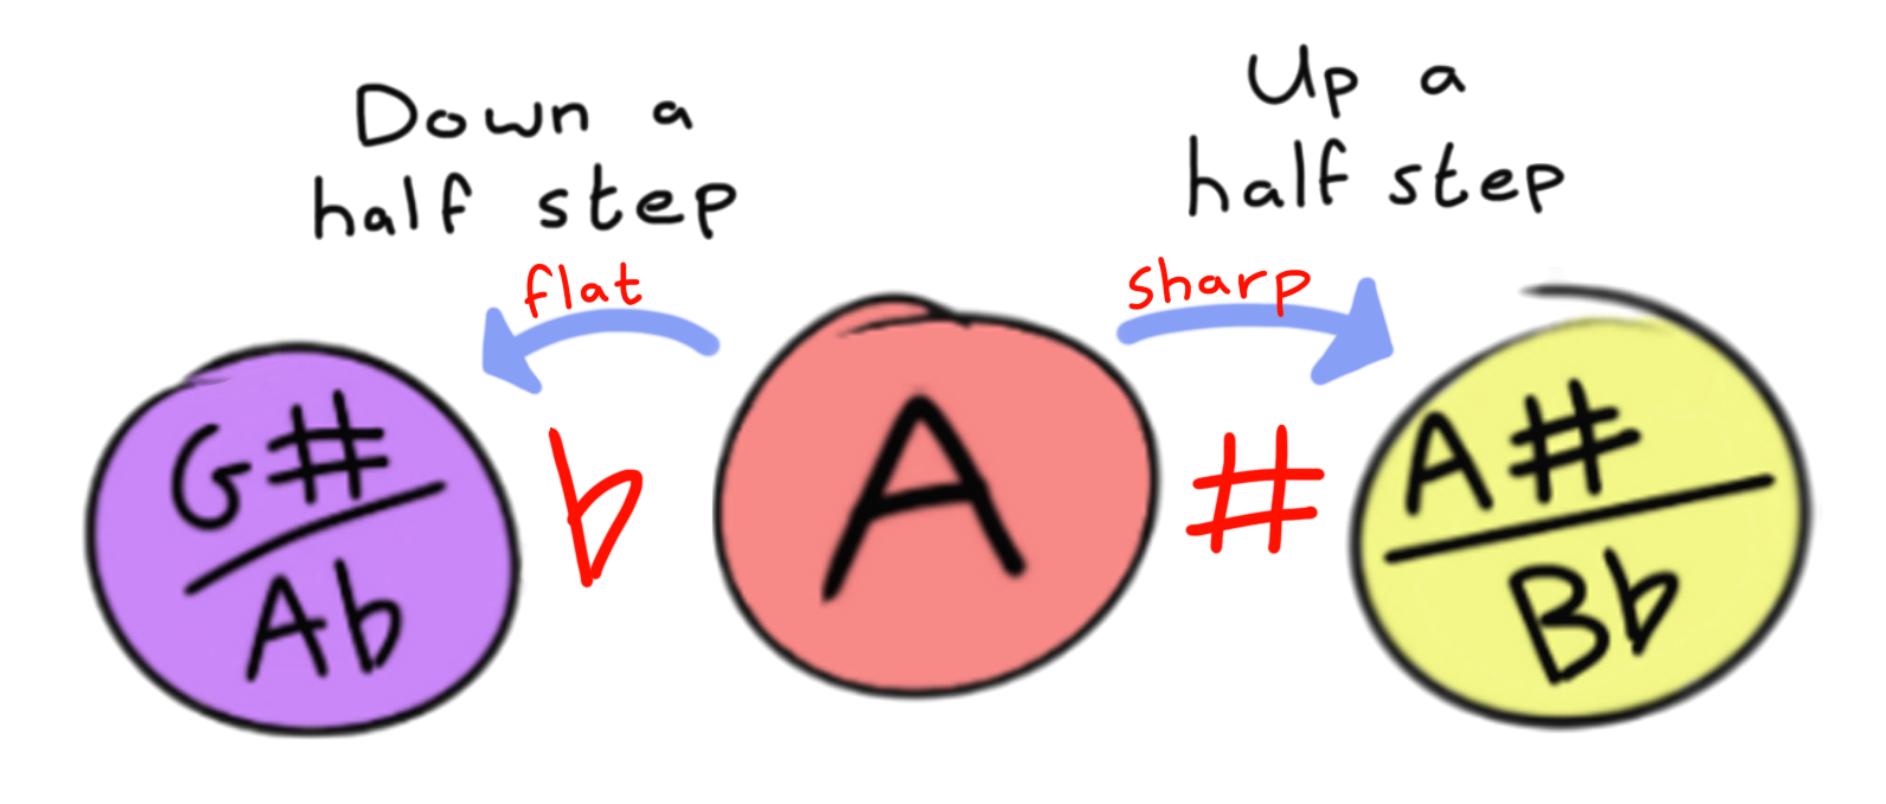 Down a
half step
Up a
half step
flat
sharp
G#
Ab
b
A
#
A#
Bb